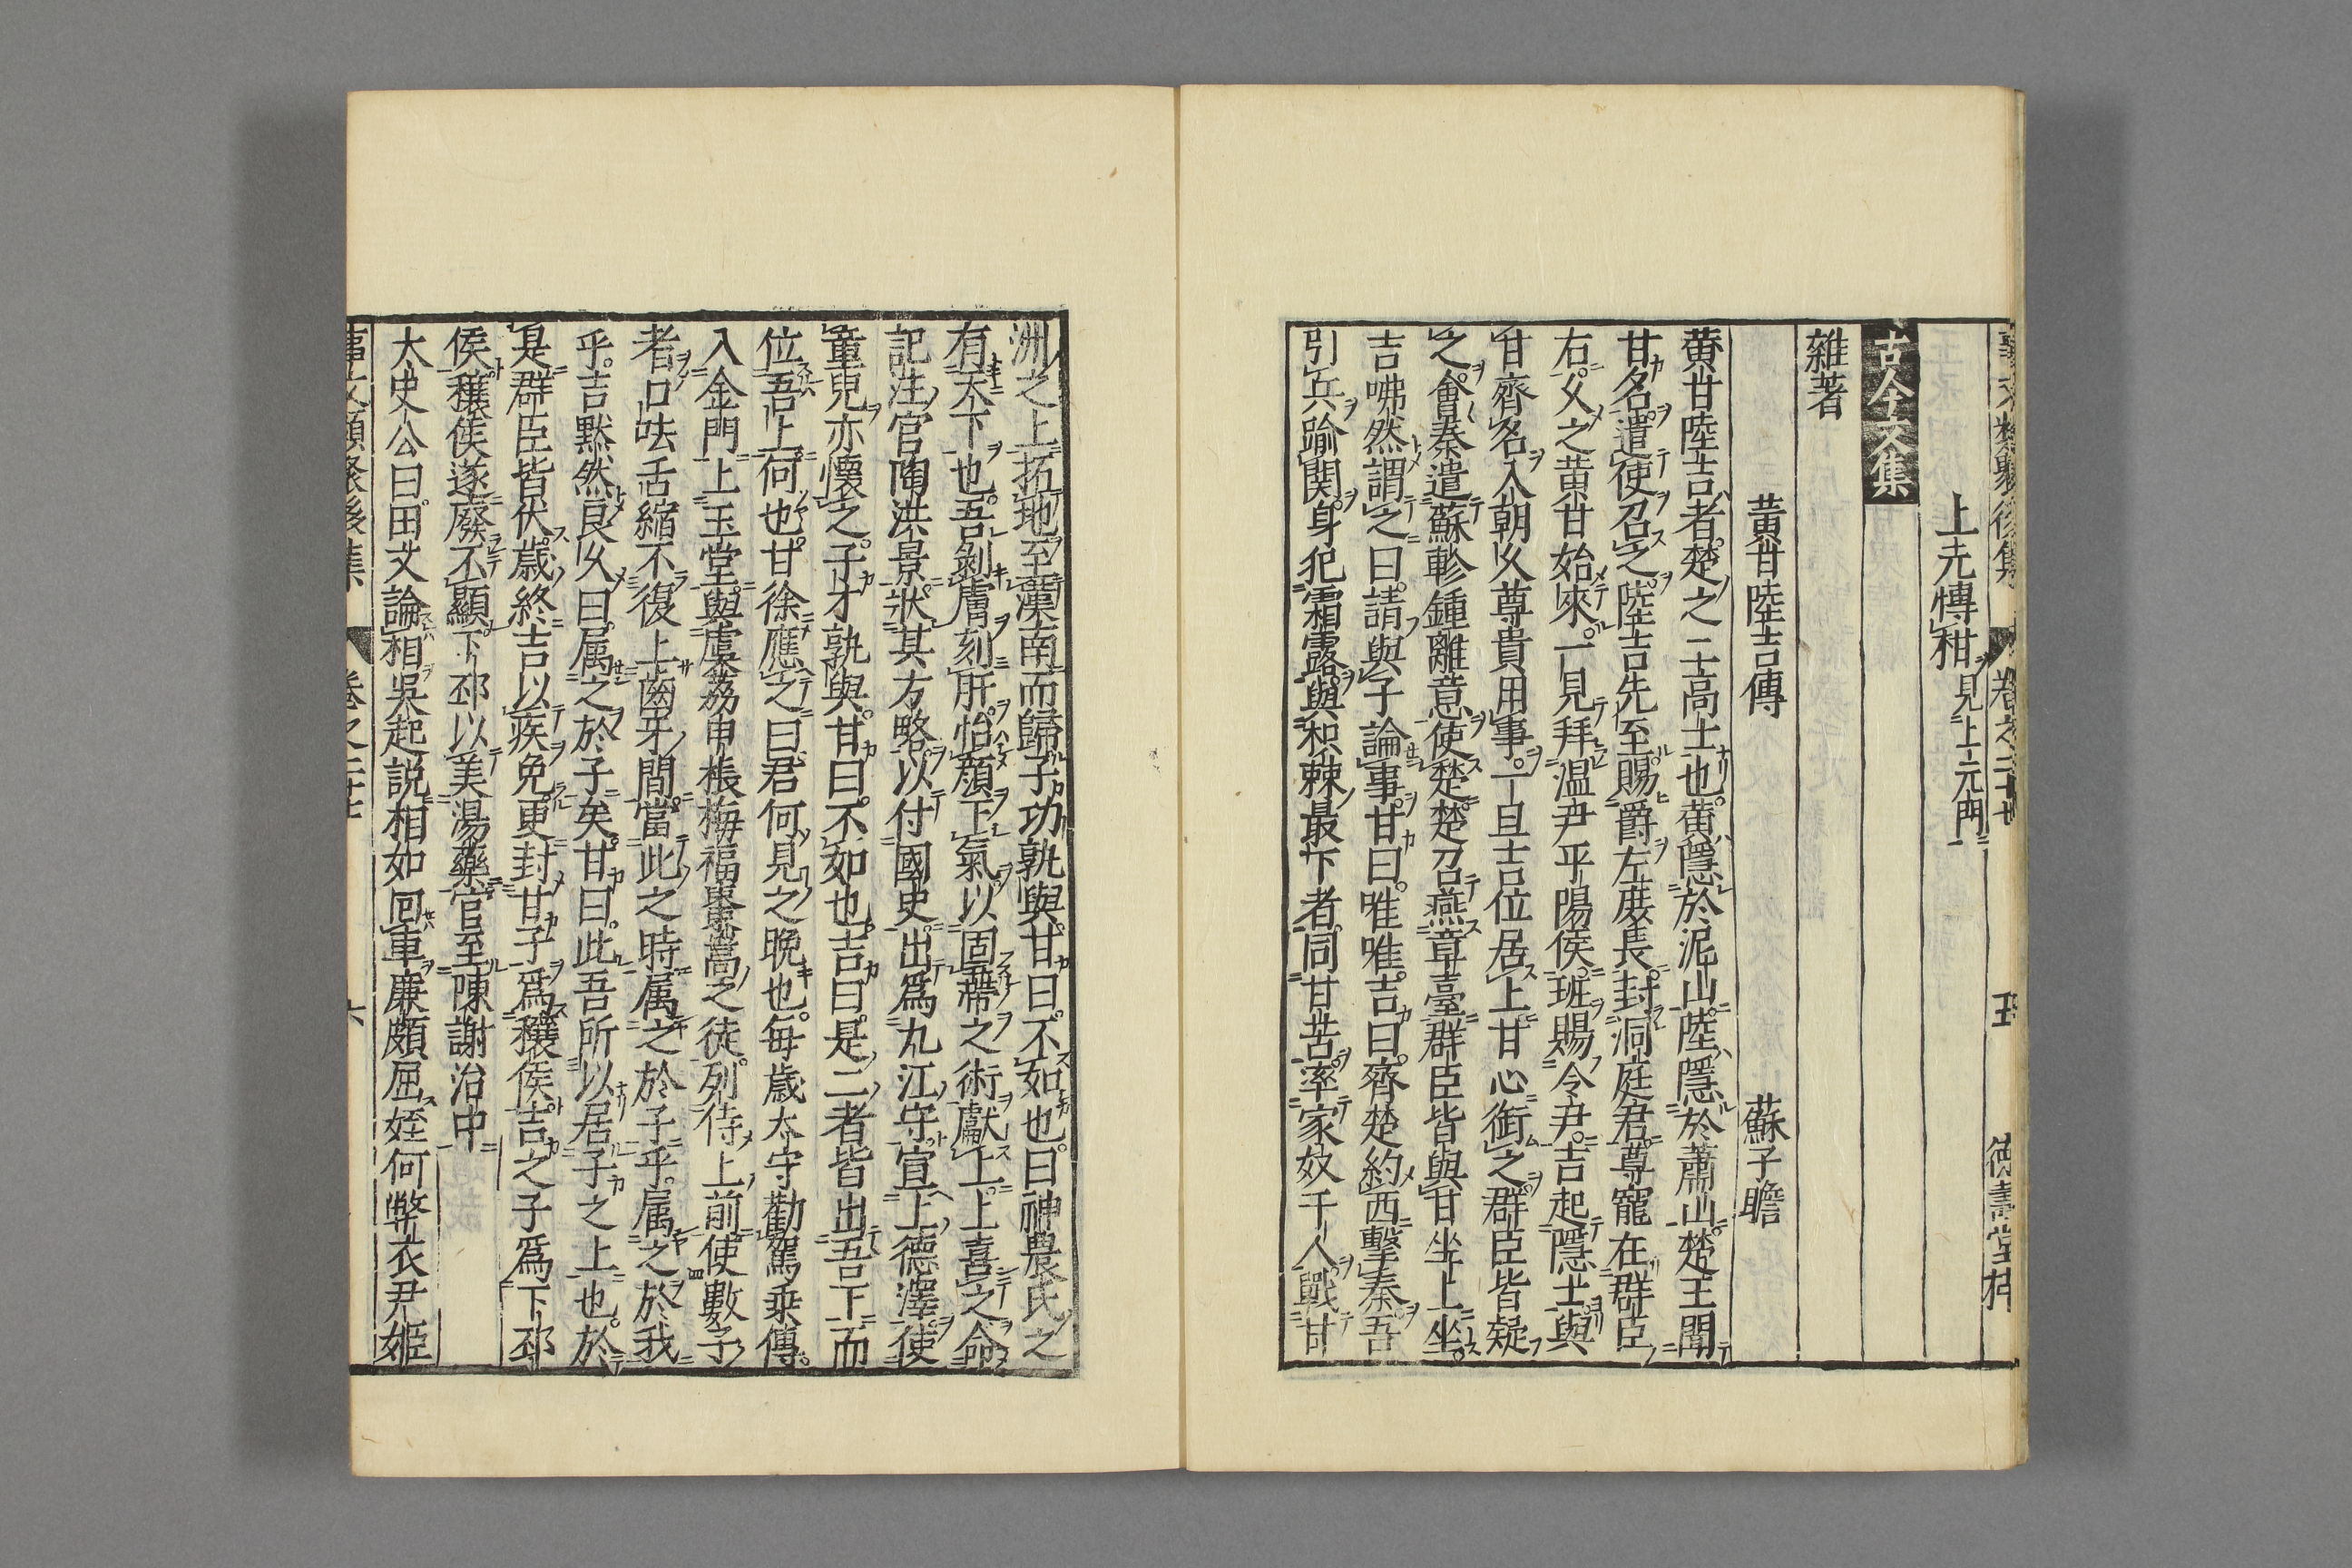 事文類聚後集 卷之二十七 五 德壽堂梓
上元傳柑 見上元門
古今文集
雜著
黄甘陸吉傳 蘇子瞻
黄甘陸吉者楚之二士高士也黄隱於泥山陸隱於蕭山楚王聞
甘名遣使召之陸吉先至賜爵左庶長封洞庭君尊寵在群臣
右久之黄甘始來一見拜温尹平陽侯班賜令尹吉起隱士與
甘齊名入朝久尊貴用事一旦吉位居上甘心銜之群臣皆疑
之會秦遣蘇軫鍾離意使楚楚召燕章臺群臣皆與甘坐上坐
吉咈然謂之曰請與子論事甘曰唯唯吉曰齊楚約西擊秦吾
引兵踰関身犯霜露與枳棘最下者同甘苦率家奴千人戰甘
洲之上拓地至漢南而歸子功孰與甘曰不如也曰神農氏之
有天下也吾剝膚刻肝怡顔下氣以固蔕之術獻上上喜之命
記注官陶洪景狀其方略以付國史出爲九江守宣上德澤使
童兒亦懷之子才孰與甘曰不如也吉曰是二者皆出吾下而
位吾上何也甘徐應之曰君何見之晩也毎歳太守勸駕乗傳
入金門上玉堂與虞荔申棖梅福棗嵩之徒列侍上前使數子
者口呿舌縮不復上齒牙間當此之時属之於子乎属之於我
乎吉黙然良久曰属之於子矣甘曰此吾所以居子之上也於
是群臣皆伏歳終吉以疾免更封甘子爲穰侯吉之子爲下邳
侯穰侯遂廢不顯下邳以美湯藥官至陳謝治中
太史公曰田文論相吳起説相如回車廉頗屈姪何幣衣尹姫
事文類聚後集 卷之二十七 六